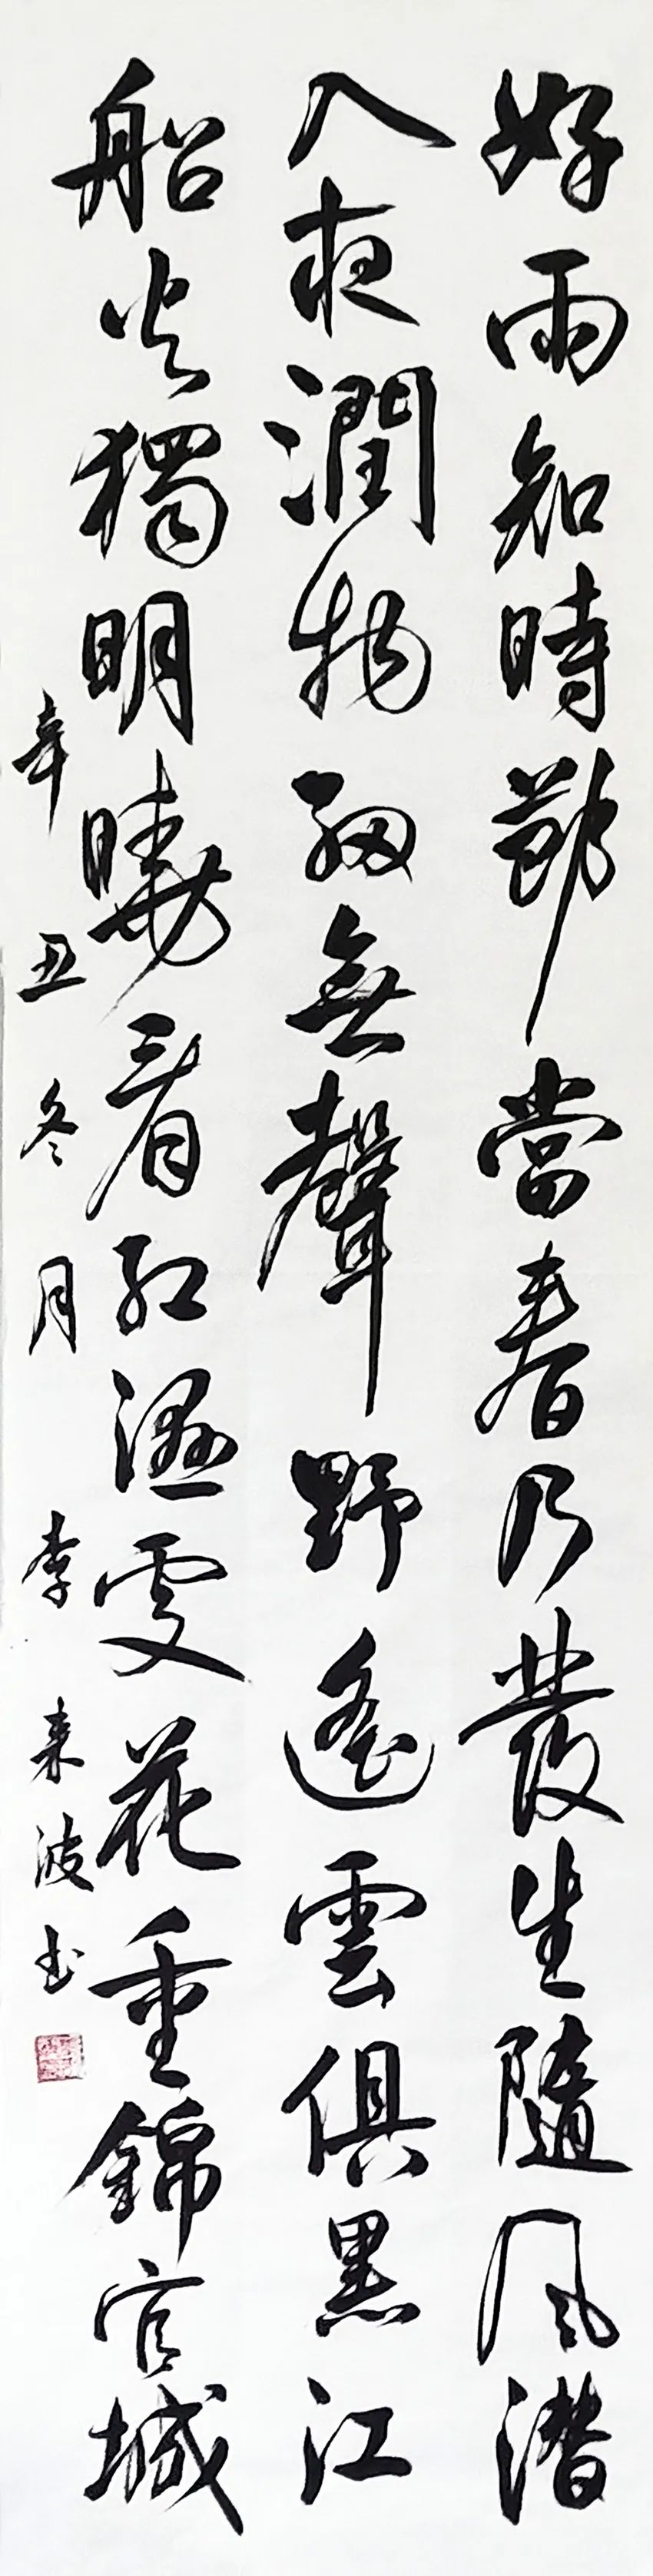 好雨知時節當春乃發生隨風潛
入夜潤物細無聲野逕雲俱黑江
船火獨明曉看紅濕處花重錦官城
辛丑冬月李来波书